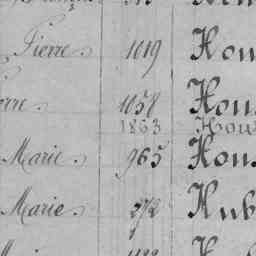 Pierre. 1019 Hou
rre. 1158 Hou
1863 Hou
Marie. 965 Hou
Marie. 272 Hub